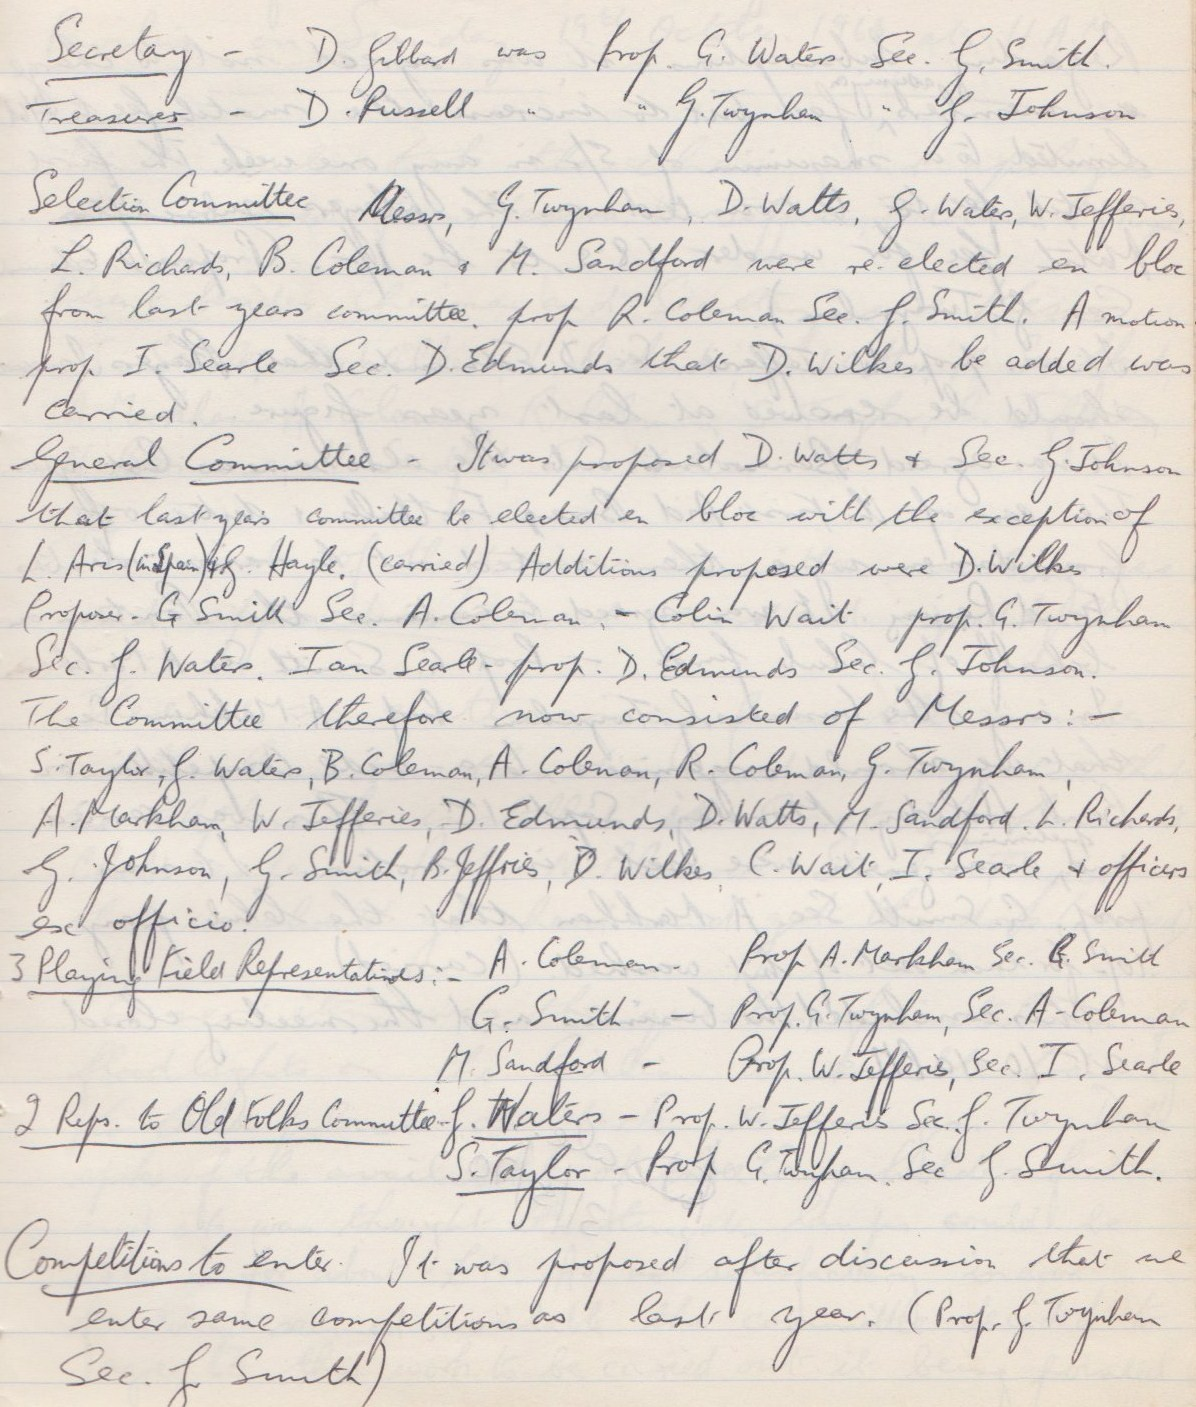 Secretary - D. Gibbard was Prop. G. Waters Sec. G. Smith.
Treasurer - D. Russell " " G. Twynham " G. Johnson
Selection Committee Messrs, G. Twynham, D. Watts, G. Waters, W. Jefferies,
L. Richards, B. Coleman & M. Sandford were re-elected en bloc
from last years committee. prop R. Coleman Sec. G. Smith. A motion
prop. I. Searle Sec. D. Edmunds that D. Wilkes be added was
carried.
General Committee - It was proposed D. Watts & Sec. G. Johnson
that last year's committee be elected en bloc with the exception of
L. Aris (in Spain) & G. Hayle. (carried) Additions proposed were D. Wilkes
Proposer - G Smith Sec. A. Coleman. - Colin Wait prop. G. Twynham
Sec. G. Waters. Ian Searle - prop. D. Edmunds Sec. G. Johnson.
The Committee therefore now consisted of Messrs :-
S. Taylor, G. Waters, B. Coleman, A. Coleman, R. Coleman, G. Twynham,
A. Markham, W. Jefferies, D. Edmunds, D. Watts, M. Sandford. L. Richards,
G. Johnson, G. Smith, B. Jeffries, D. Wilkes, C. Wait, I. Searle & officers
ex officio.
3 Playing Field Representatives :- A. Coleman - Prop A. Markham Sec. G. Smith
G. Smith - Prop. G. Twynham, Sec. A. Coleman
M. Sandford - Prop. W. Jefferis, Sec. I. Searle
2 Reps. to Old Folks Committee - G. Waters - Prop. W. Jefferis Sec. G. Twynham
S. Taylor - Prop G. Twynham. Sec G. Smith.
Competitions to enter. It was proposed after discussion that we
enter same competitions as last year. (Prop. G. Twynham
Sec. G. Smith)